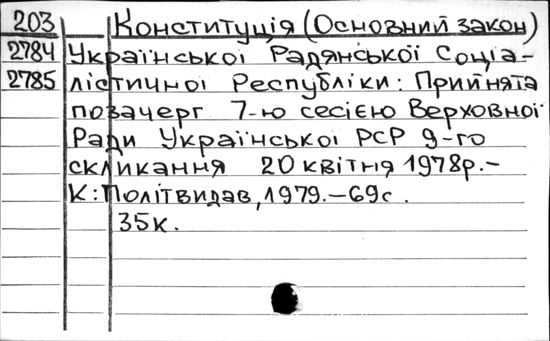 203 Конституція (Основний закон)
2784 Української Радянської Соціа-
2785 лістичної Республіки: Прийнята
позачерг 7-ю сесією Верховної
Ради Української РСР 9-го
скликання 20 квітня 1978р.-
К: Політвидав, 1979.-69с.
35к.